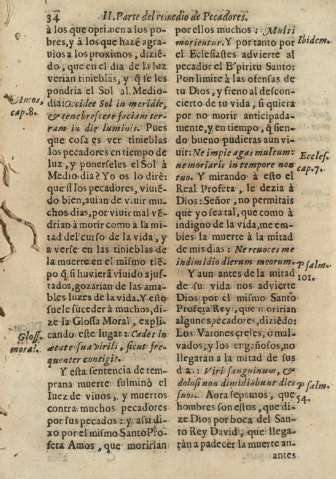 34 II. Parte del remedio de Pecadores.
à los que oprimen a los po-
bres, y à los que hazé agra-
vios a los proximos, diziẽ-
do, que en el dia de la luz
verian tinieblas, y q̃ se les
pondria el Sol al Medio-
dia: Occidet Sol in meridie,
& tenebrescere faciam ter-
ram in die luminis. Pues
que cosa es ver tinieblas
los pecadores en tiempo de
luz, y ponerseles el Sol à
Medio dia? Yo os lo diré:
que si los pecadores, viviẽ-
do bien, auian de viuir mu-
chos dias, por viuir mal vẽ-
drian à morir como a la mi-
tad del curso de la vida, y
a verse en las tinieblas de
la muerte en el mismo tiẽ-
po q̃ si huvierã viuido ajus-
tados, gozarian de las ama-
bles luzes de la vida. Y esto
suele suceder à muchos, di-
ze la Glossa Moral, expli-
cando este lugar: Cadet in
ætate sua virili, sicut fre-
quenter contigit.
Y esta sentencia de tem-
prana muerte fulminò el
Iuez de vinos, y muertos
contra muchos pecadores
por sus pecados: y assi di-
xo por el mismo Santo Pro-
feta Amos, que moririan
Amos,
cap. 8.
Gloss.
moral.
por ellos muchos: Multi
morientur. Y por tanto por
el Eclesiastes advierte al
pecador el Espiritu Santo:
Pon limite à las ofensas de
tu Dios, y freno al descon-
cierto de tu vida, si quieres
por no morir anticipada-
mente, y en tiempo, q̃ sien-
do bueno pudieras aun vi-
uir: Ne impie agas multum:
ne moriaris in tempore non
tuo. Y mirando à esto el
Real Profeta, le dezia à
Dios: Señor, no permitais
que yo sea tal, que como à
indigno de la vida, me em-
bies la muerte à la mitad
de mis dias: Ne revoces me
in dimidio dierum meorum.
Y aun antes de la mitad
de su vida nos advierte
Dios por el mismo Santo
Profeta Rey, que moriràn
algunos pecadores, diziẽdo:
Los Varones crueles, ò mal-
vados, y los engañosos, no
llegaràn à la mitad de sus
dias: Viri sanguinum, &
dolosi non dimidiabunt dies
suos. Aora sepamos, que
hombres son estos, que di-
ze Dios por boca del San-
to Rey David, que llega-
ràn a padecer la muerte an-
antes
Ibidem.
Eccles.
cap. 7.
Psalm.
101.
Psalm.
54.